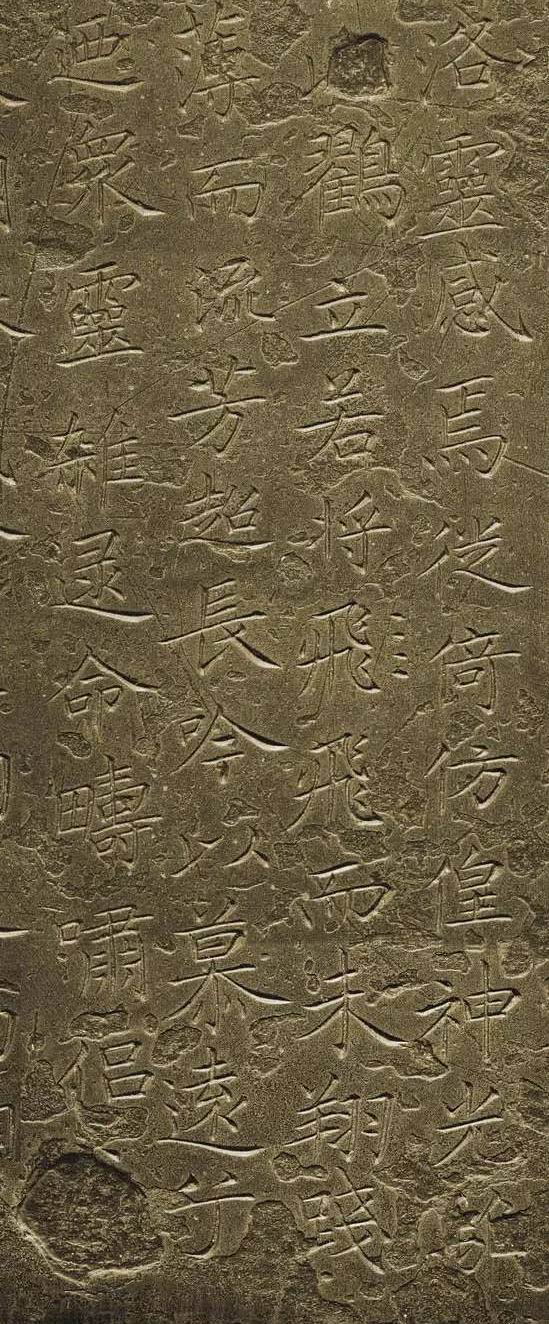 洛靈感焉徙倚仿偟神光離
鶴立若将飛飛而未翔踐
薄而流芳超長吟以慕遠兮
迺衆靈雜遝命疇嘯侶